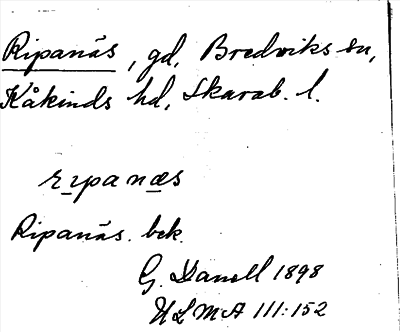 Ripanäs, gd, Bredviks sn,
Kåkinds hd, Skarab. l.
rıpanæs
Ripanäs. bek.
G. Danell 1898
ULMA 111:152